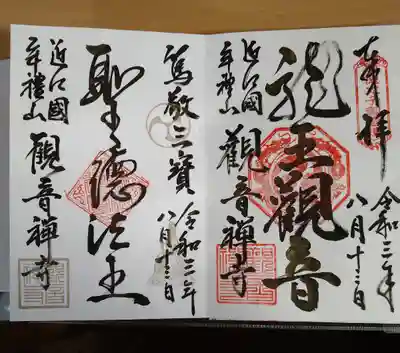 奉拝
令和三年
八月十三日
龍王觀音
近江國
牟禮山
觀音禪寺
篤敬三寳
令和三年
八月十三日
聖德法王
近江國
牟禮山
觀音禪寺